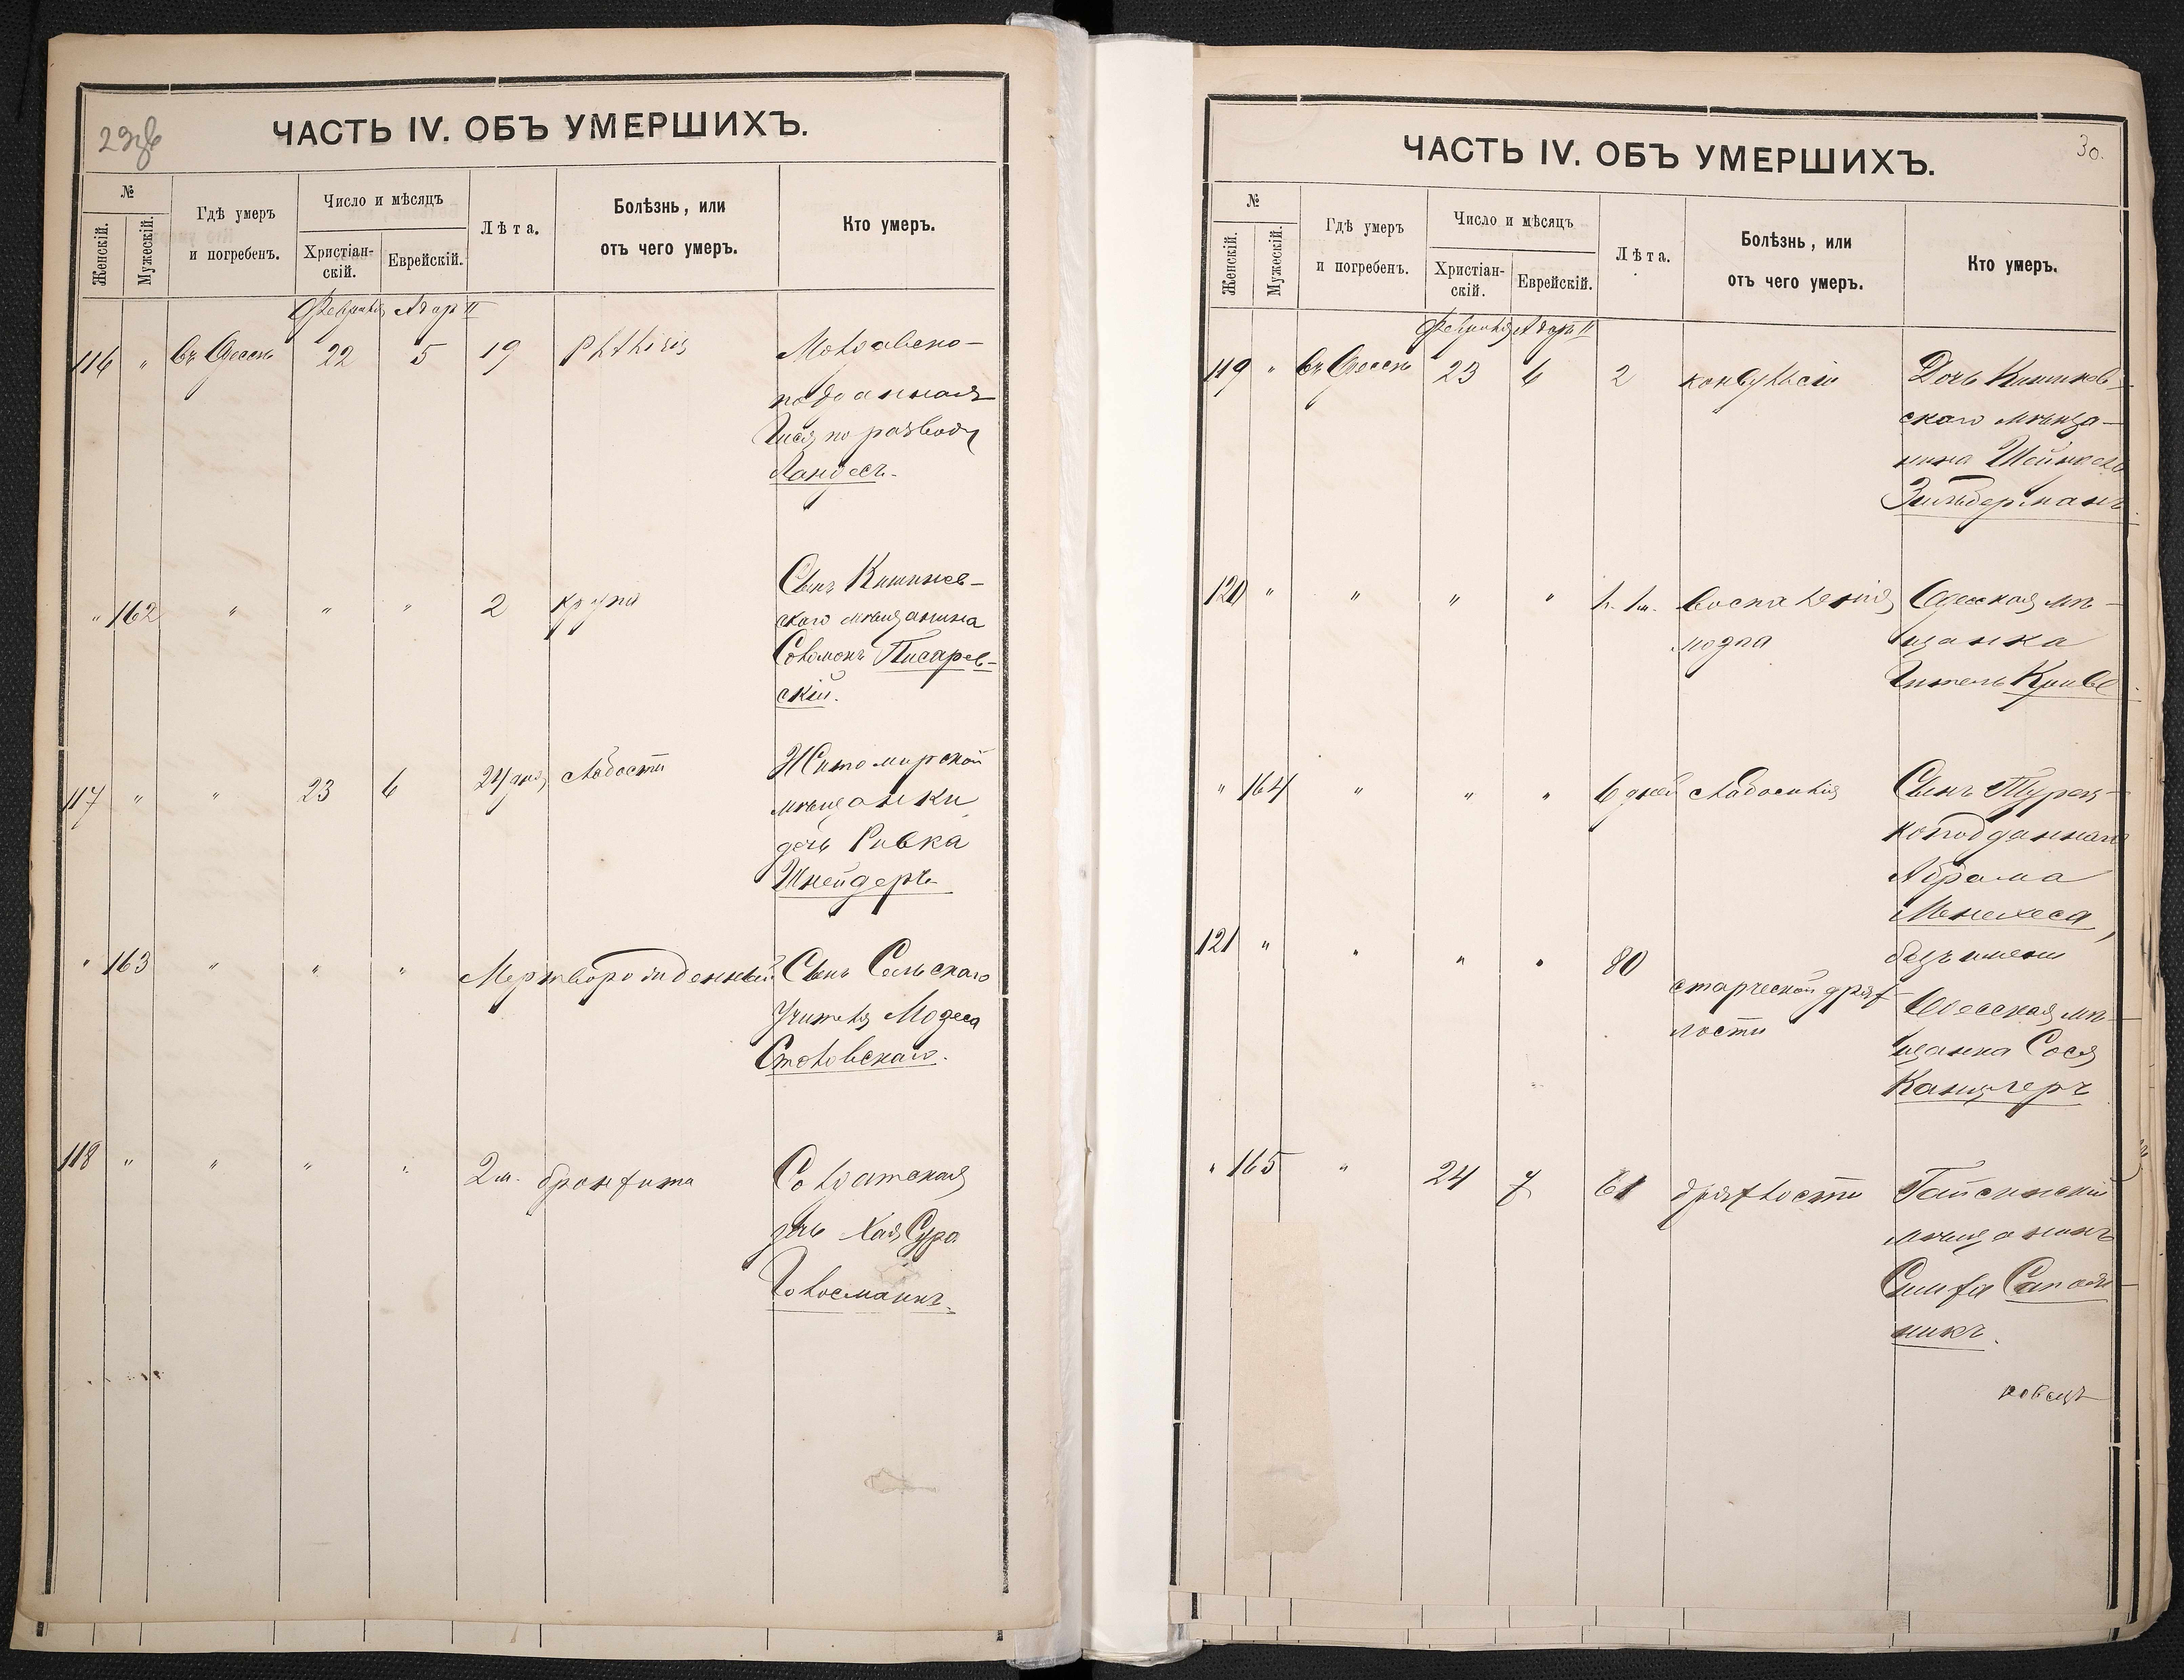 29об
ЧАСТЬ IV. ОБЪ УМЕРШИХЪ.
№
Женскій.
Мужескій.
Гдѣ умеръ
и погребенъ.
Число и мѣсяцъ
Христіан-
скій.
Еврейскій.
Лѣта.
Болѣзнь, или
отъ чего умеръ.
Кто умеръ.
Февраля Адаръ II
116 " въ Одессѣ 22 5 19 Phthisis Молдавско-
подданная
по разводу
Ландесъ.
" 162 " " " 2 крупа Сынъ Кишинев-
скаго мѣщанина
Соломонъ Писарев-
скій.
117 " " 23 6 24 дня слабости Житомирской
мѣщанки
дочь Ривка
Шнейдеръ
" 163 " " " Мертворожденный Сынъ Сельскаго
Учителя
Столовскаго.
118 " " " " 2 м. бронхита Солдатская
дочь Хая Сура
30.
ЧАСТЬ IV. ОБЪ УМЕРШИХЪ.
№
Женскій.
Мужескій.
Гдѣ умеръ
и погребенъ.
Число и мѣсяцъ
Христіан-
скій.
Еврейскій.
Лѣта.
Болѣзнь, или
отъ чего умеръ.
Кто умеръ.
Февраля Адаръ II
119 " въ Одессѣ 23 6 2 конвульсіи Дочь Кишинев-
скаго мѣща-
нина
Зильберманъ.
120 " " " " воспаленія Одесская мѣ-
мозга щанка
" 164 " " " 6 дней слабосилія Сынъ Турец-
коподданнаго
Абрама
Менехеса,
безъ имени
121 " " " " 80 старческой дрях-
лости Одесская мѣ-
щанка Сося
Канцлеръ
" 165 " 24 7 61 дряхлости Гайсинскій
мѣщанинъ
Симха Сапож-
никъ.